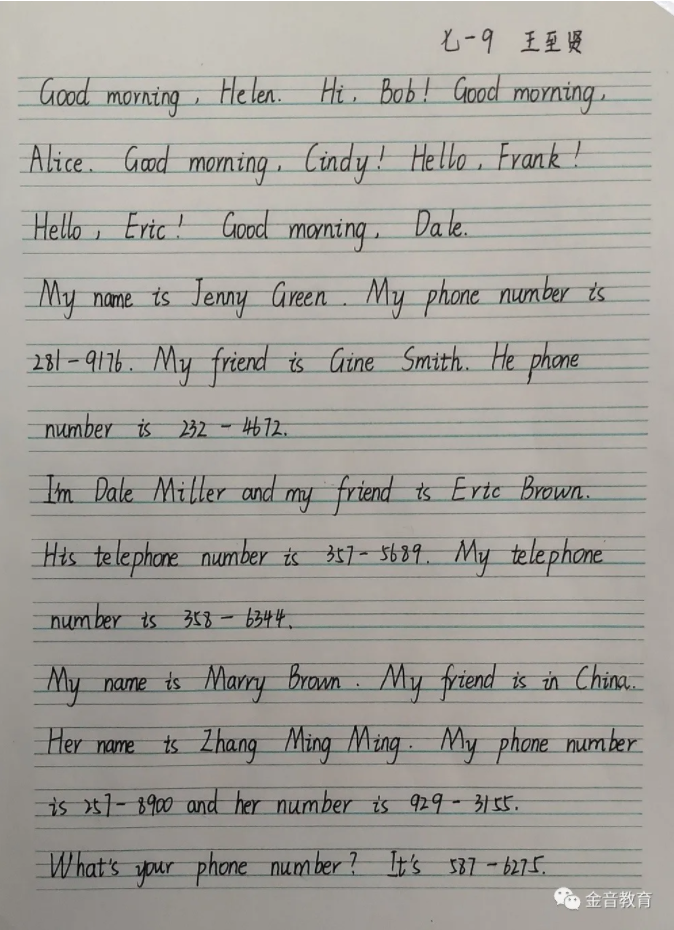 七-9 王至贤
Good morning, Helen. Hi, Bob! Good morning,
Alice. Good morning, Cindy! Hello, Frank!
Hello, Eric! Good morning, Dale.
My name is Jenny Green. My phone number is
281-9176. My friend is Gine Smith. He phone
number is 232-4672.
I'm Dale Miller and my friend is Eric Brown.
His telephone number is 357-5689. My telephone
number is 358-6344.
My name is Marry Brown. My friend is in China.
Her name is Zhang Ming Ming. My phone number
is 257-8900 and her number is 929-3155.
What's your phone number? It's 587-6275.
金音教育